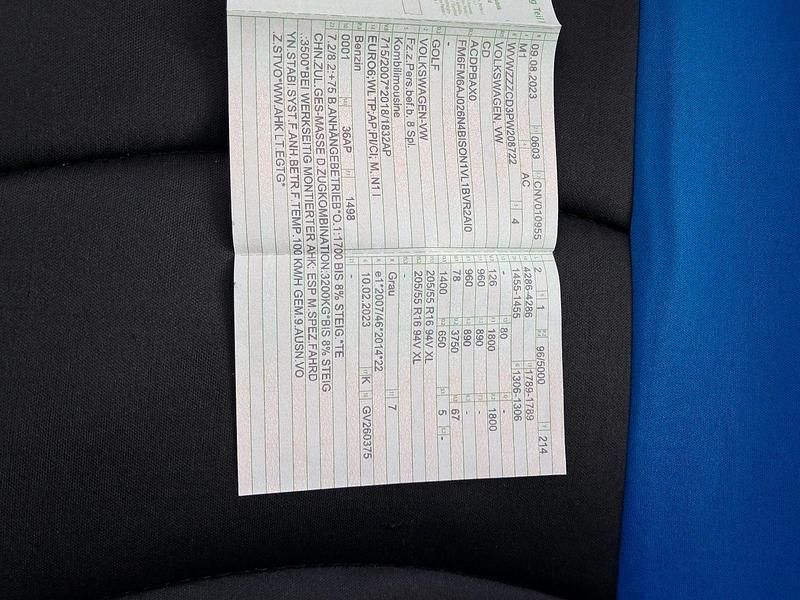 ng Teil I
09.08.2023 0603 CNV010955
M1 AC
WVWZZZCD3PW208722 4
VOLKSWAGEN, VW
CD
ACDPBAX0
FM6FM6AJ026N4BISON1VL1BVR2AI0
GOLF
VOLKSWAGEN-VW
Fz.z.Pers.bef.b. 8 Spl.
Kombilimousine
715/2007*2018/1832AP
EURO6;WLTP;AP;PI/CI; M, N1 I
Benzin
0001 36AP 1498
2 1 96/5000 214
4286-4286 1789-1789
1455-1455 1306-1306
- 80 -
126 1800 1800
960 890 -
960 890 -
78 3750 67
1400 650 5 -
205/55 R16 94V XL
205/55 R16 94V XL
-
Grau 7
e1*2007/46*2014*22
10.02.2023 K GV260375
-
7.2/8.2:+75 B.ANHÄNGEBETRIEB*O.1:1700 BIS 8% STEIG.*TE
CHN.ZUL.GES-MASSE D.ZUGKOMBINATION:3200KG*BIS 8% STEIG
.:3500*BEI WERKSEITIG MONTIERTER AHK: ESP M.SPEZ.FAHRD
YN.STABI.SYST.F.ANH.BETR.F.TEMP.100 KM/H GEM.9.AUSN.VO
Z.STVO*WW.AHK LT.EGTG*